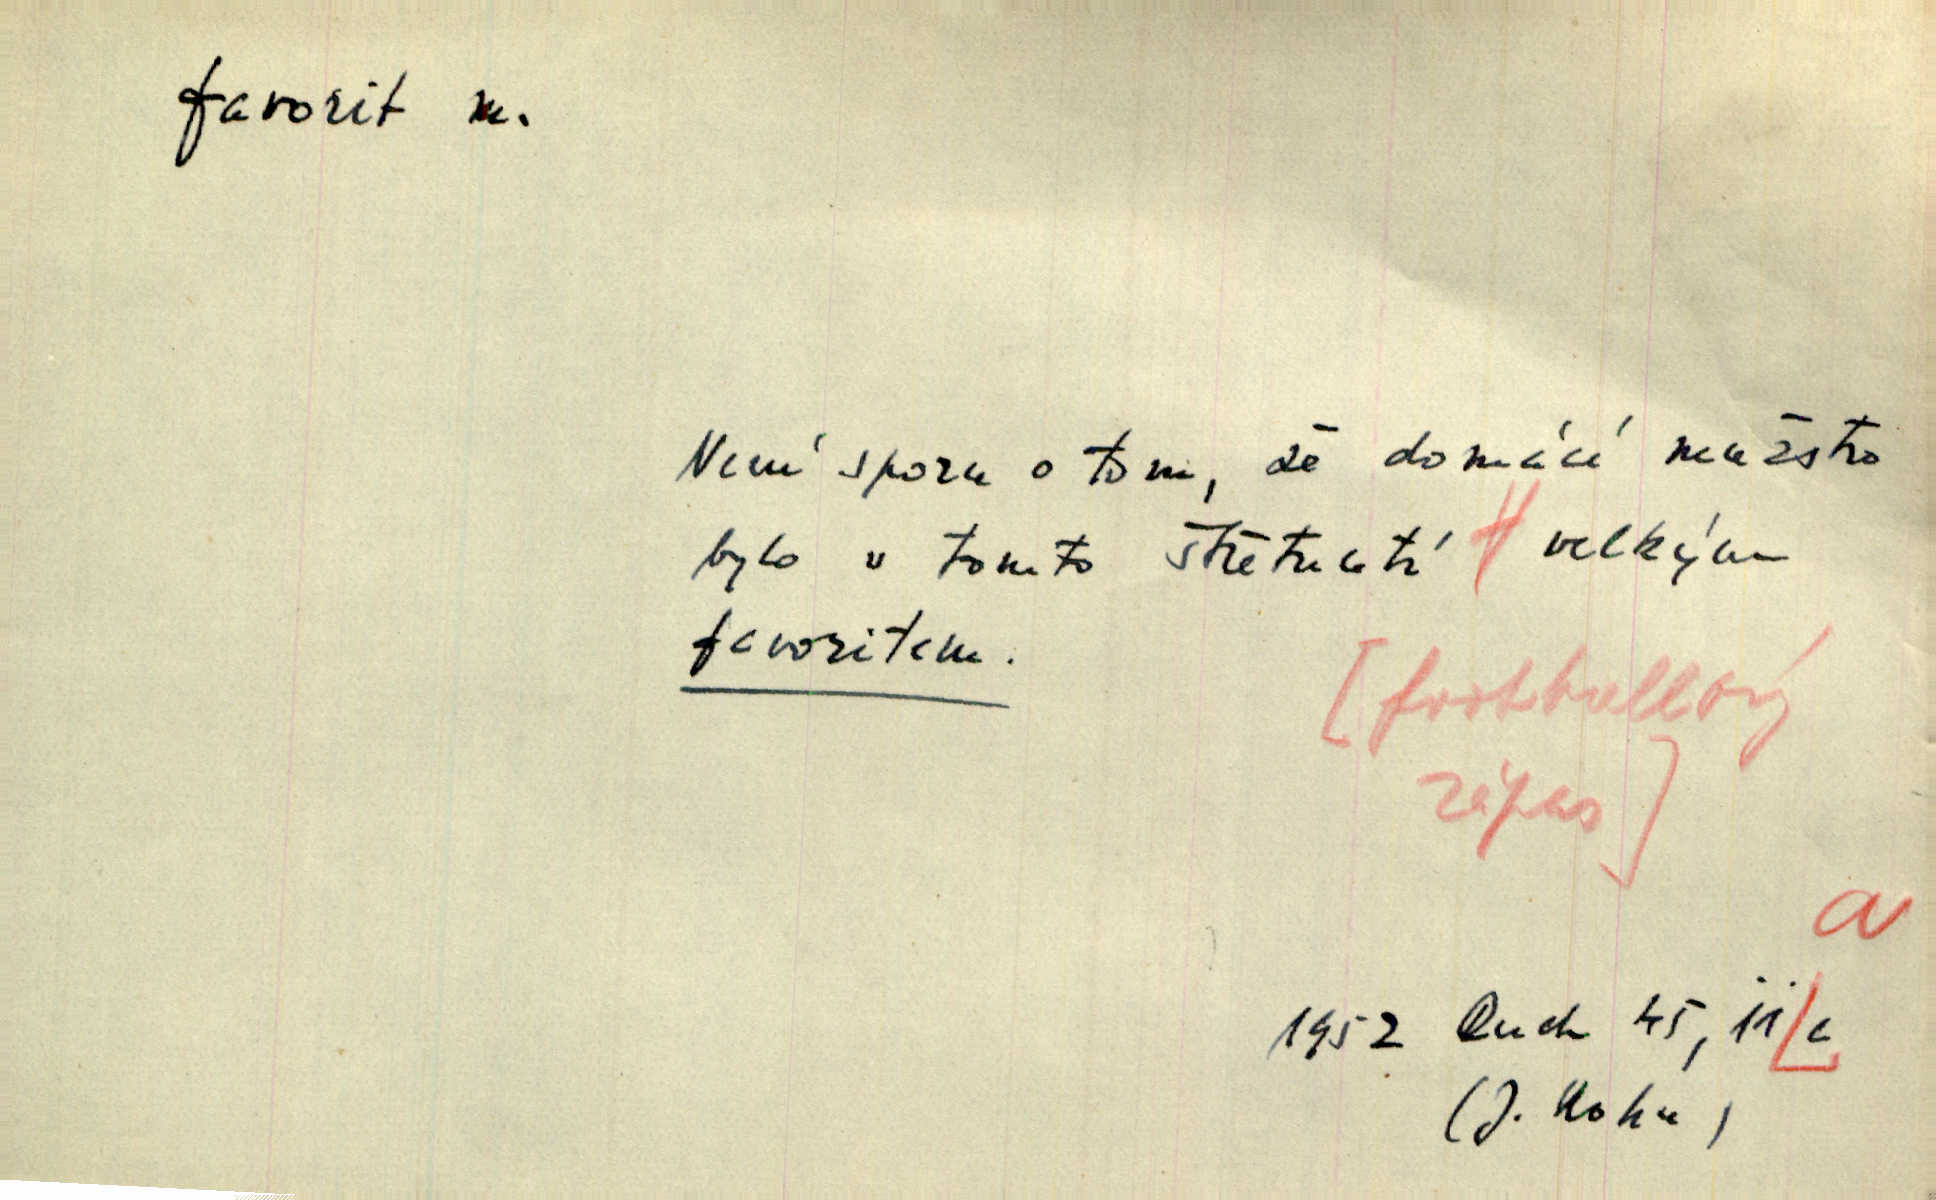 favorit m.
Není sporu o tom, že domácí mužstvo
bylo v tomto střetnutí velkým
favoritem.
[footballový
zápas]
a
1952 Ruch 45, 11/a
(J. Kohn)